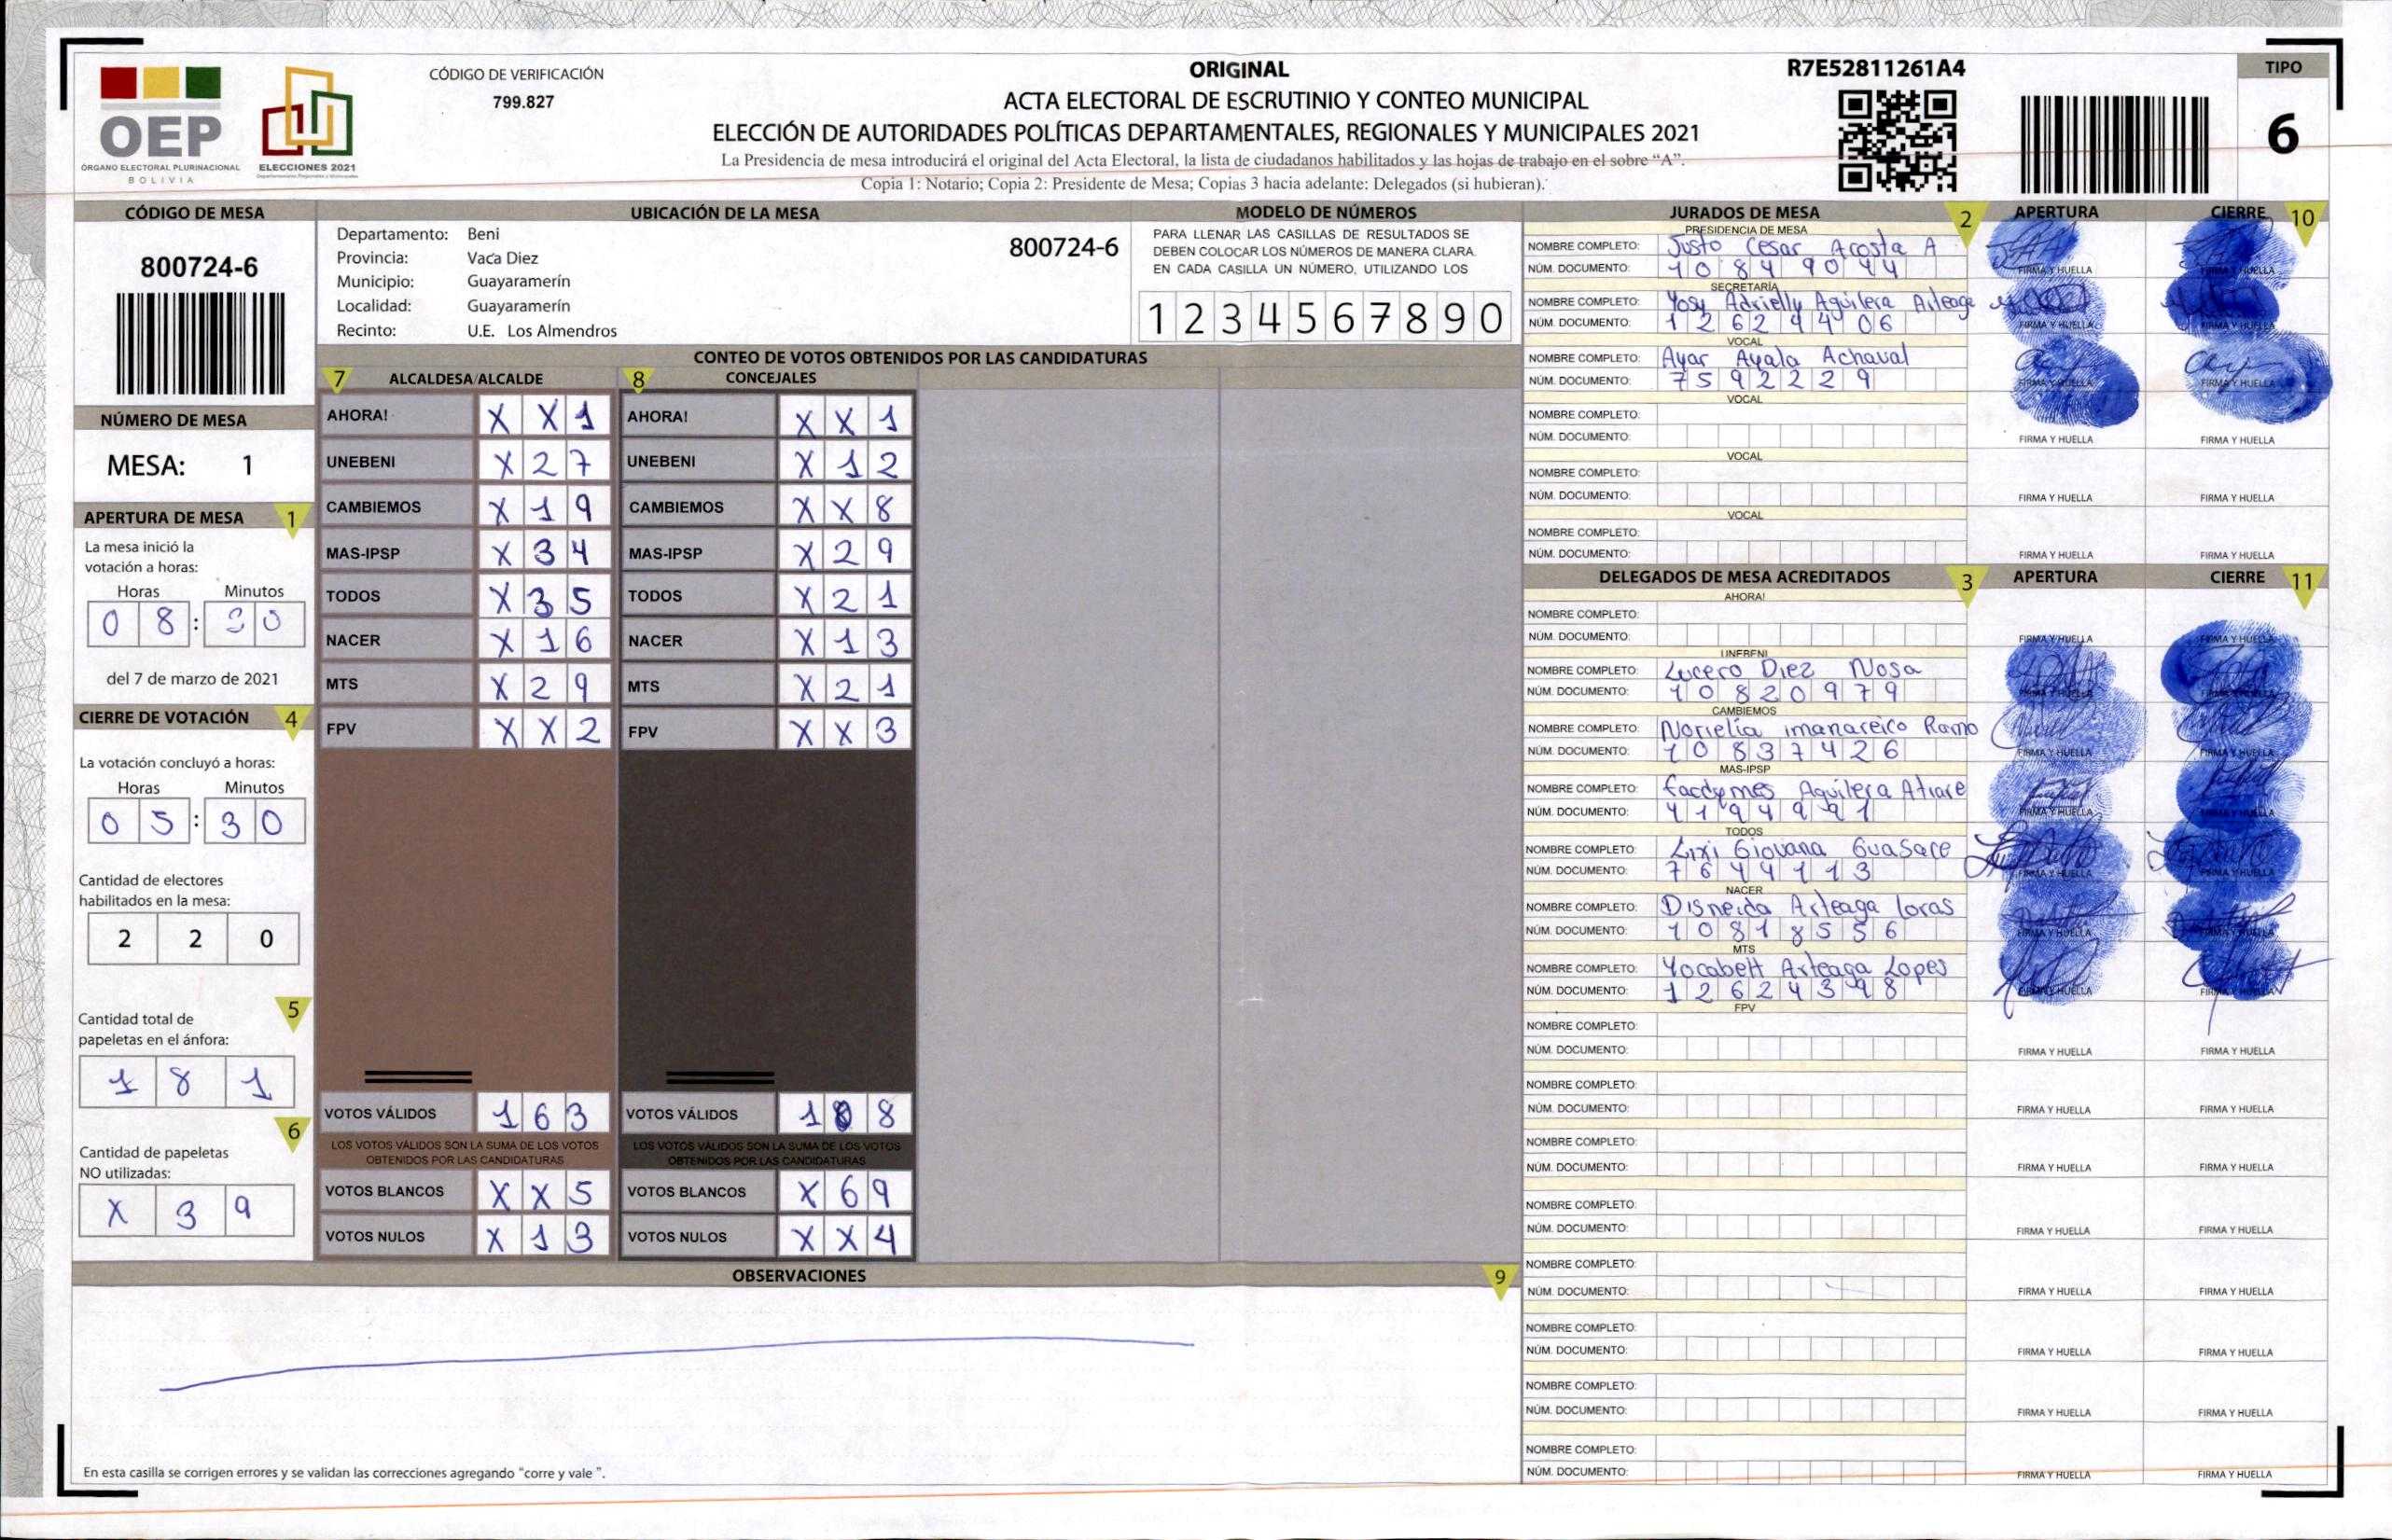 OEP
ÓRGANO ELECTORAL PLURINACIONAL
BOLIVIA
ELECCIONES 2021
CÓDIGO DE VERIFICACIÓN
799.827
ORIGINAL
ACTA ELECTORAL DE ESCRUTINIO Y CONTEO MUNICIPAL
ELECCIÓN DE AUTORIDADES POLÍTICAS DEPARTAMENTALES, REGIONALES Y MUNICIPALES 2021
La Presidencia de mesa introducirá el original del Acta Electoral, la lista de ciudadanos habilitados y las hojas de trabajo en el sobre “A”.
Copia 1: Notario; Copia 2: Presidente de Mesa; Copias 3 hacia adelante: Delegados (si hubieran).
R7E52811261A4
TIPO
6
CÓDIGO DE MESA
800724-6
NÚMERO DE MESA
MESA: 1
APERTURA DE MESA 1
La mesa inició la
votación a horas:
Horas Minutos
0 8 : 3 0
del 7 de marzo de 2021
CIERRE DE VOTACIÓN 4
La votación concluyó a horas:
Horas Minutos
0 5 : 3 0
Cantidad de electores
habilitados en la mesa:
2 2 0
5
Cantidad total de
papeletas en el ánfora:
1 8 1
6
Cantidad de papeletas
NO utilizadas:
X 3 9
UBICACIÓN DE LA MESA
Departamento: Beni
Provincia: Vaca Diez
Municipio: Guayaramerín
Localidad: Guayaramerín
Recinto: U.E. Los Almendros
800724-6
MODELO DE NÚMEROS
PARA LLENAR LAS CASILLAS DE RESULTADOS SE
DEBEN COLOCAR LOS NÚMEROS DE MANERA CLARA.
EN CADA CASILLA UN NÚMERO, UTILIZANDO LOS
1 2 3 4 5 6 7 8 9 0
CONTEO DE VOTOS OBTENIDOS POR LAS CANDIDATURAS
7 ALCALDESA/ALCALDE 8 CONCEJALES
AHORA! X X 1 AHORA! X X 1
UNEBENI X 2 7 UNEBENI X 1 2
CAMBIEMOS X 1 9 CAMBIEMOS X X 8
MAS-IPSP X 3 4 MAS-IPSP X 2 9
TODOS X 3 5 TODOS X 2 1
NACER X 1 6 NACER X 1 3
MTS X 2 9 MTS X 2 1
FPV X X 2 FPV X X 3
VOTOS VÁLIDOS 1 6 3 VOTOS VÁLIDOS 1 0 8
LOS VOTOS VÁLIDOS SON LA SUMA DE LOS VOTOS LOS VOTOS VÁLIDOS SON LA SUMA DE LOS VOTOS
OBTENIDOS POR LAS CANDIDATURAS OBTENIDOS POR LAS CANDIDATURAS
VOTOS BLANCOS X X 5 VOTOS BLANCOS X 6 9
VOTOS NULOS X 1 3 VOTOS NULOS X X 4
OBSERVACIONES 9
En esta casilla se corrigen errores y se validan las correcciones agregando “corre y vale ”.
JURADOS DE MESA 2 APERTURA CIERRE 10
PRESIDENCIA DE MESA
NOMBRE COMPLETO: Justo Cesar Acosta A
NÚM. DOCUMENTO: 10849044 FIRMA Y HUELLA FIRMA Y HUELLA
SECRETARÍA
NOMBRE COMPLETO: Yosy Adrielly Aguilera Arteaga
NÚM. DOCUMENTO: 12624406 FIRMA Y HUELLA FIRMA Y HUELLA
VOCAL
NOMBRE COMPLETO: Ayar Ayala Achaval
NÚM. DOCUMENTO: 7592229 FIRMA Y HUELLA FIRMA Y HUELLA
VOCAL
NOMBRE COMPLETO:
NÚM. DOCUMENTO: FIRMA Y HUELLA FIRMA Y HUELLA
VOCAL
NOMBRE COMPLETO:
NÚM. DOCUMENTO: FIRMA Y HUELLA FIRMA Y HUELLA
VOCAL
NOMBRE COMPLETO:
NÚM. DOCUMENTO: FIRMA Y HUELLA FIRMA Y HUELLA
DELEGADOS DE MESA ACREDITADOS 3 APERTURA CIERRE 11
AHORA!
NOMBRE COMPLETO:
NÚM. DOCUMENTO: FIRMA Y HUELLA FIRMA Y HUELLA
UNEBENI
NOMBRE COMPLETO: Lucero Diez Nosa
NÚM. DOCUMENTO: 10820979 FIRMA Y HUELLA FIRMA Y HUELLA
CAMBIEMOS
NOMBRE COMPLETO: Norielia imanareico Ramo
NÚM. DOCUMENTO: 10837426 FIRMA Y HUELLA FIRMA Y HUELLA
MAS-IPSP
NOMBRE COMPLETO: Aguilera
NÚM. DOCUMENTO: FIRMA Y HUELLA FIRMA Y HUELLA
TODOS
NOMBRE COMPLETO: Lixi Giovana Guasace
NÚM. DOCUMENTO: 7644113 FIRMA Y HUELLA FIRMA Y HUELLA
NACER
NOMBRE COMPLETO: Disneida Arteaga loras
NÚM. DOCUMENTO: 10818556 FIRMA Y HUELLA FIRMA Y HUELLA
MTS
NOMBRE COMPLETO: Yocabett Arteaga Lopes
NÚM. DOCUMENTO: 12624398 FIRMA Y HUELLA FIRMA Y HUELLA
FPV
NOMBRE COMPLETO:
NÚM. DOCUMENTO: FIRMA Y HUELLA FIRMA Y HUELLA
NOMBRE COMPLETO:
NÚM. DOCUMENTO: FIRMA Y HUELLA FIRMA Y HUELLA
NOMBRE COMPLETO:
NÚM. DOCUMENTO: FIRMA Y HUELLA FIRMA Y HUELLA
NOMBRE COMPLETO:
NÚM. DOCUMENTO: FIRMA Y HUELLA FIRMA Y HUELLA
NOMBRE COMPLETO:
NÚM. DOCUMENTO: FIRMA Y HUELLA FIRMA Y HUELLA
NOMBRE COMPLETO:
NÚM. DOCUMENTO: FIRMA Y HUELLA FIRMA Y HUELLA
NOMBRE COMPLETO:
NÚM. DOCUMENTO: FIRMA Y HUELLA FIRMA Y HUELLA
NOMBRE COMPLETO:
NÚM. DOCUMENTO: FIRMA Y HUELLA FIRMA Y HUELLA